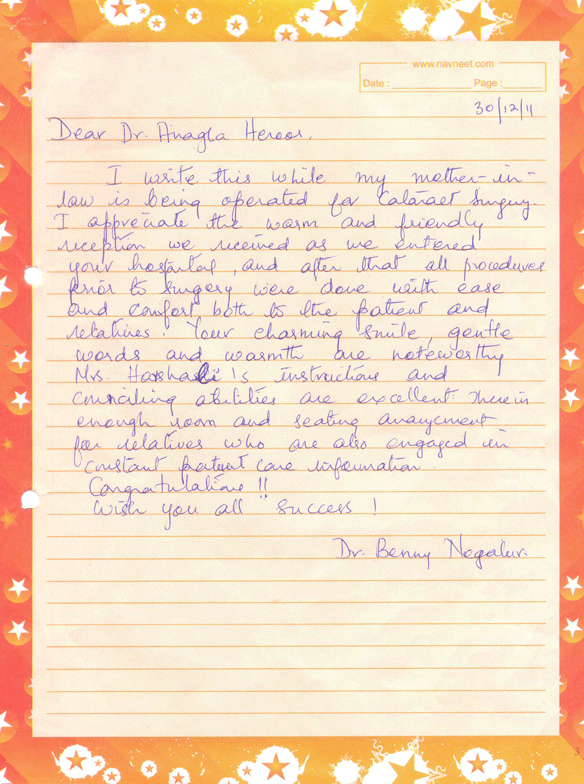 www.navneet.com
Date : Page :
30/12/11
Dear Dr. Anagla Heroor,
I write this while my mother-in-
law is being operated for Cataract Surgery.
I appreciate the warm and friendly
reception we received as we entered
your hospital, and after that all procedures
prior to surgery were done with ease
and comfort both to the patient and
relatives. Your charming smile, gentle
words and warmth are noteworthy
Mrs. 's instructions and
counciling abilities are excellent. There is
enough room and seating arrangement
for relatives who are also engaged in
constant patient care information.
Congratulations !!
Wish you all success !
Dr. Benny Negalur.
3